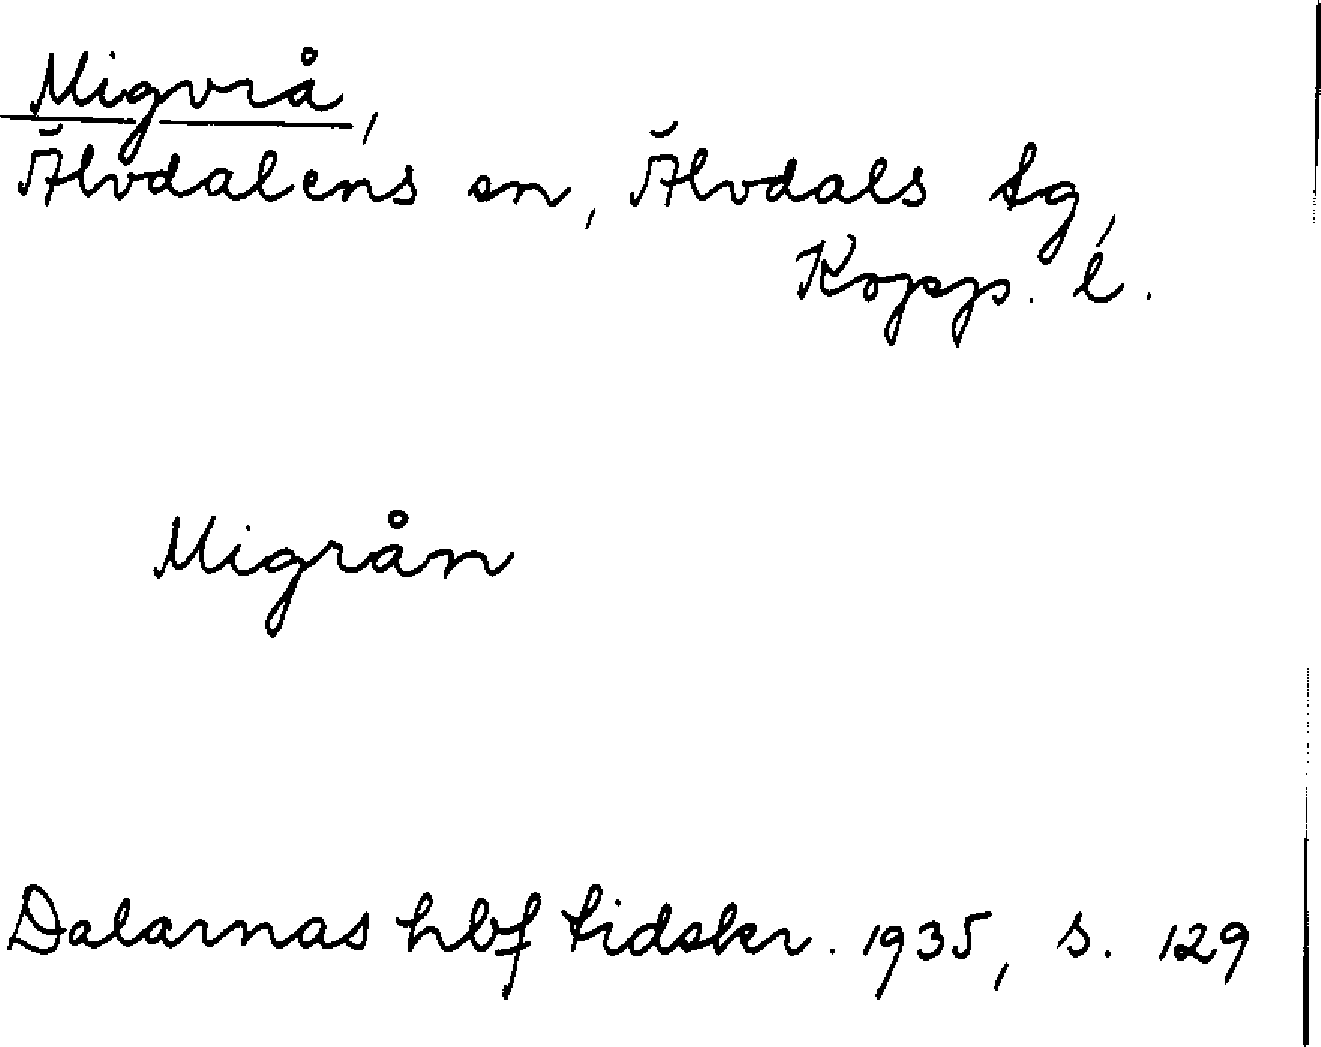 Migvrå,
Älvdalens sn, Älvdals tg,
Kopp. l.
Migrån
Dalarnas hbf tidskr. 1935, s. 129